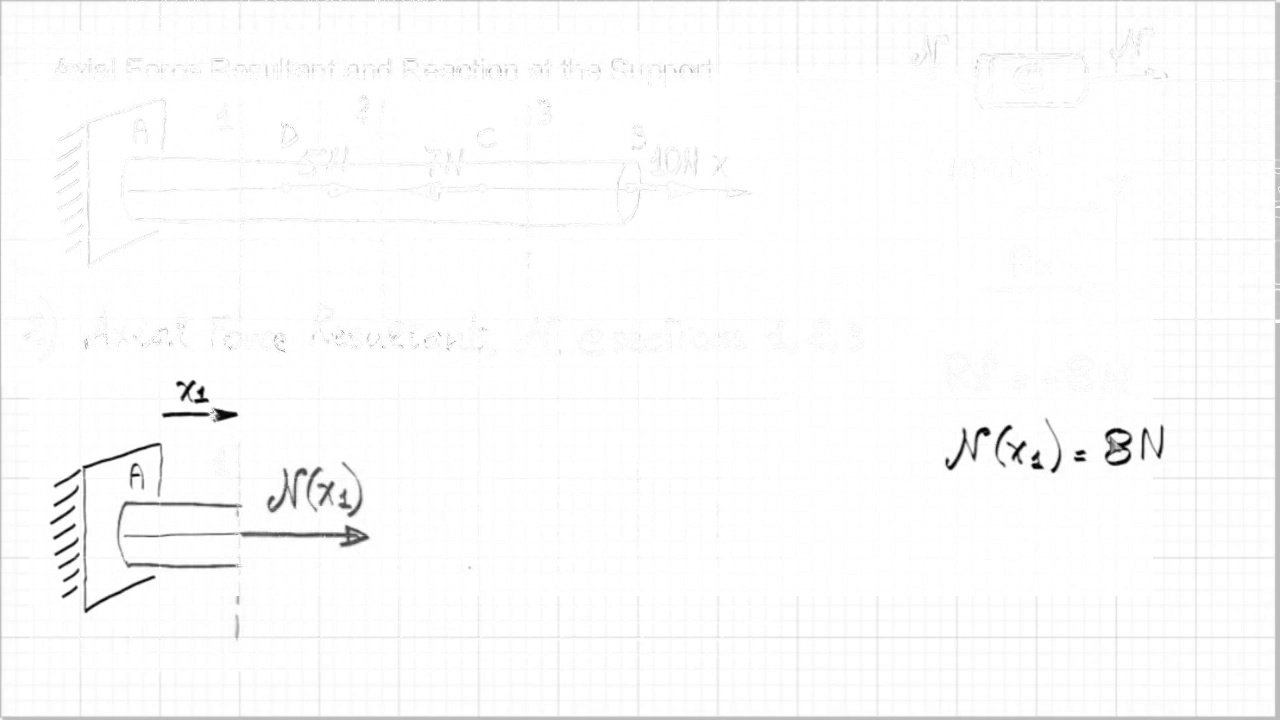 Axial Force Resultant and Reaction at the Support
N N
1 2 3
A D C B
5N 7N 10N x
2) Axial Force Resultant, N, @ sections 1, 2, 3
x₁
N(x₁) = 8N
A
N(x₁)